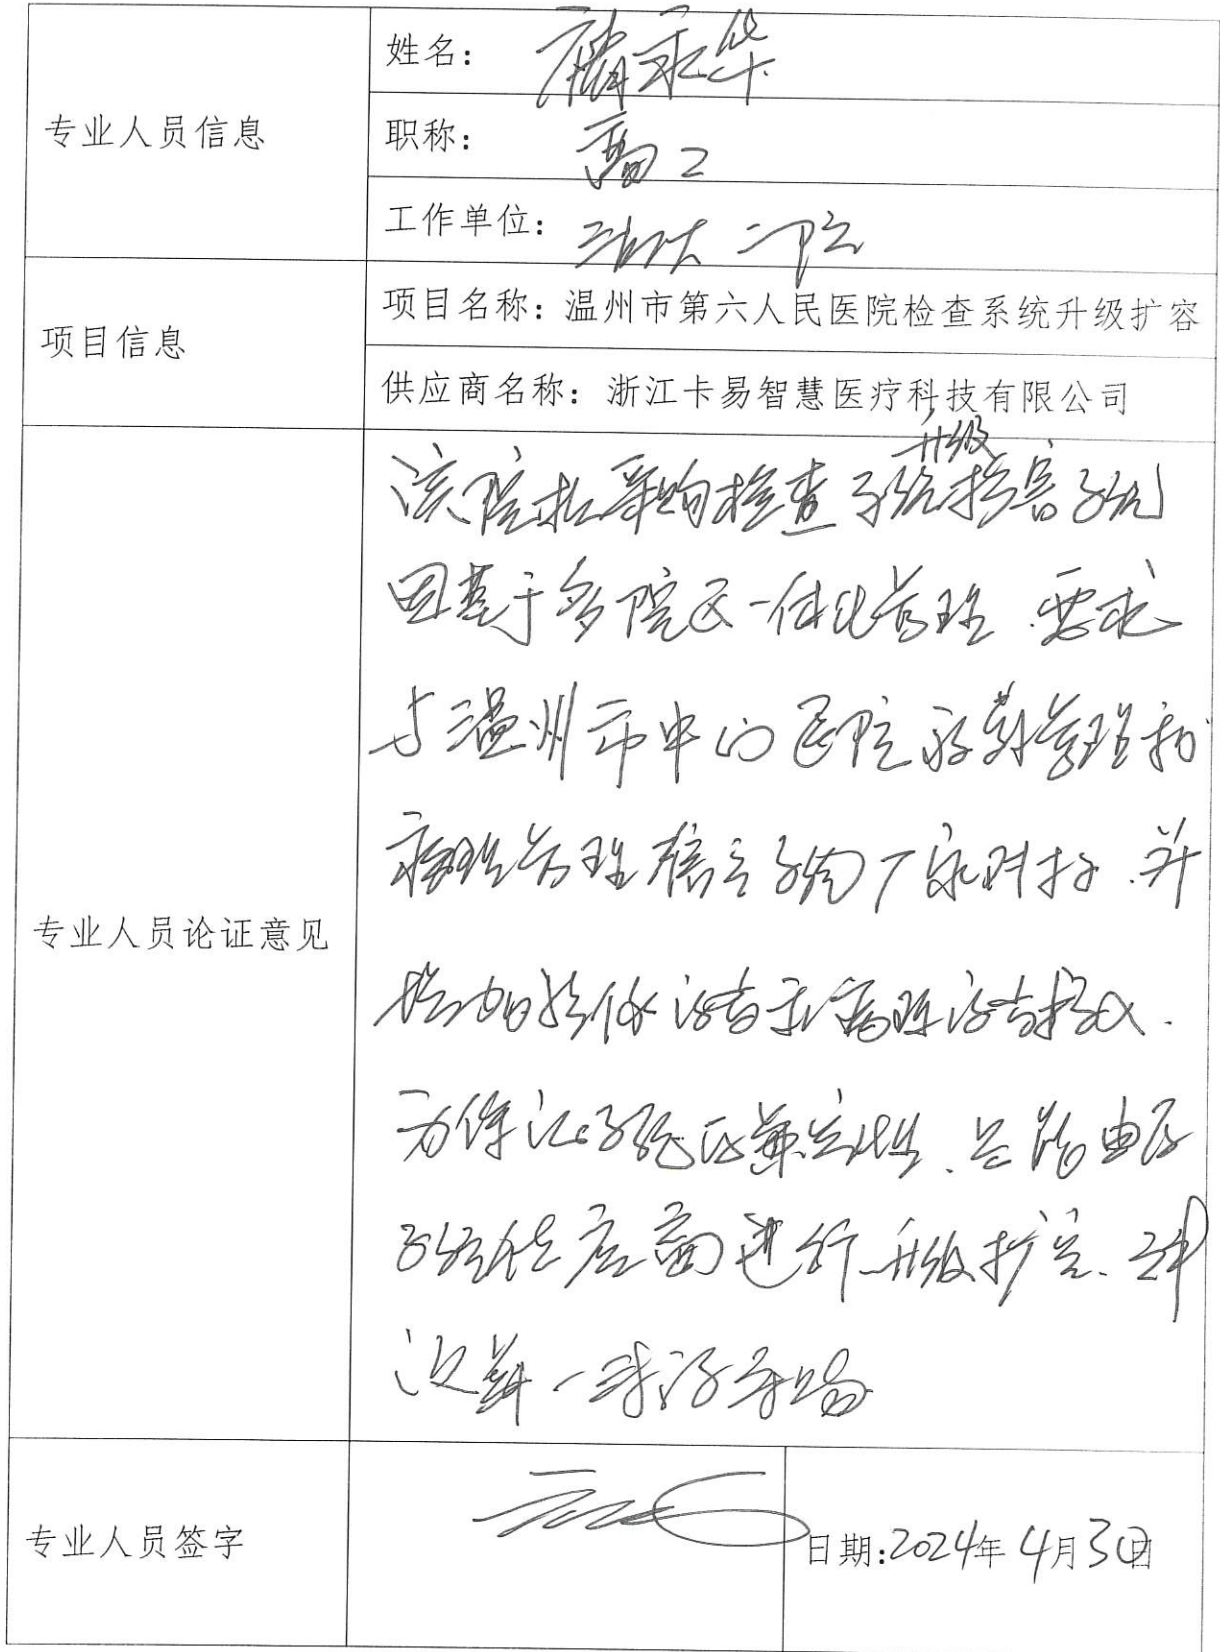 专业人员信息
姓名：
职称：高工
工作单位：浙大二院
项目信息
项目名称：温州市第六人民医院检查系统升级扩容
供应商名称：浙江卡易智慧医疗科技有限公司
专业人员论证意见
升级
该院拟采购检查系统扩容系统
因基于多院区一体化管理.要求
与温州市中心医院
病理管理信息系统厂家对接.并
增加
为保证系统 性.只能由原
系统供应商进行升级扩容.建
议单一来源采购
专业人员签字
日期:2024年4月3日